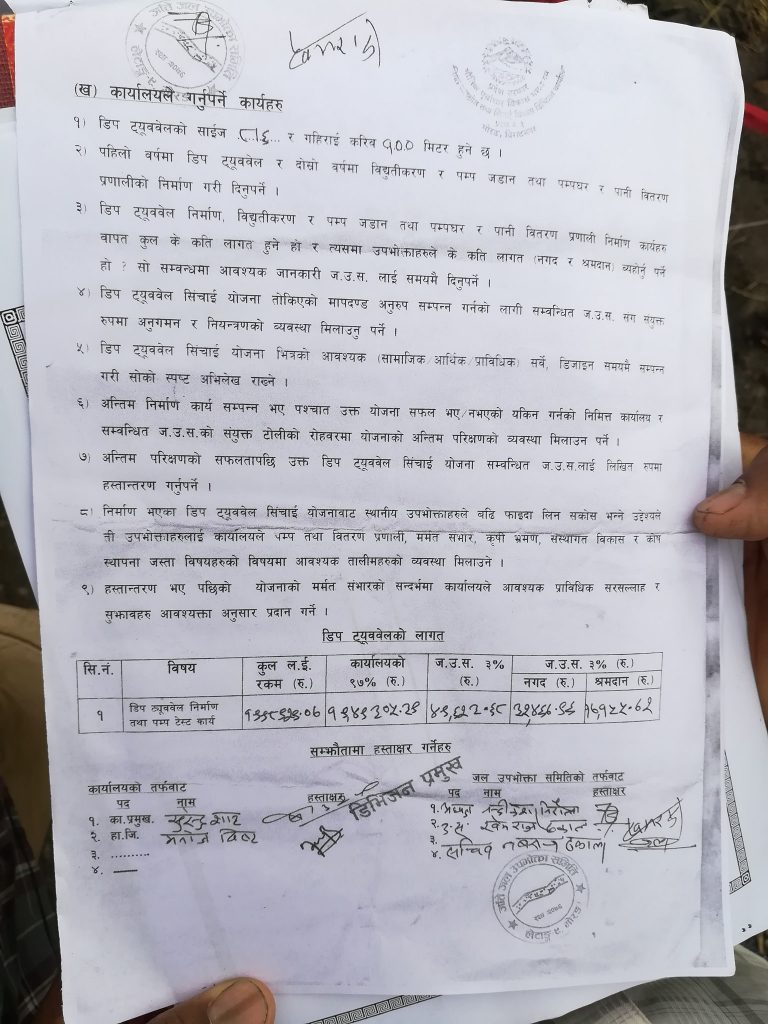 जल उपभोक्ता समिति
(ख) कार्यालयले गर्नुपर्ने कार्यहरु
१) डिप ट्यूववेलको साईज ८/६ र गहिराई करिव १०० मिटर हुने छ ।
२) पहिलो वर्षमा डिप ट्यूववेल र दोस्रो वर्षमा विद्युतीकरण र पम्प जडान तथा पम्पघर र पानी वितरण
प्रणालीको निर्माण गरी दिनुपर्ने ।
३) डिप ट्यूववेल निर्माण, विद्युतीकरण र पम्प जडान तथा पम्पघर र पानी वितरण प्रणाली निर्माण कार्यहरु
वापत कुल के कति लागत हुने हो र त्यसमा उपभोक्ताहरुले के कति लागत (नगद र श्रमदान) व्यहोर्नु पर्ने
हो ? सो सम्वन्धमा आवश्यक जानकारी ज.उ.स. लाई समयमै दिनुपर्ने ।
४) डिप ट्यूववेल सिंचाई योजना तोकिएको मापदण्ड अनुरुप सम्पन्न गर्नको लागी सम्वन्धित ज.उ.स. सग संयुक्त
रुपमा अनुगमन र नियन्त्रणको व्यवस्था मिलाउनु पर्ने ।
५) डिप ट्यूववेल सिंचाई योजना भित्रको आवश्यक (सामाजिक/आर्थिक/प्राविधिक) सर्वे, डिजाइन समयमै सम्पन्न
गरी सोको स्पष्ट अभिलेख राख्ने ।
६) अन्तिम निर्माण कार्य सम्पन्न भए पश्चात उक्त योजना सफल भए/नभएको यकिन गर्नको निमित्त कार्यालय र
सम्वन्धित ज.उ.स.को संयुक्त टोलीको रोहवरमा योजनाको अन्तिम परिक्षणको व्यवस्था मिलाउन पर्ने ।
७) अन्तिम परिक्षणको सफलतापछि उक्त डिप ट्यूववेल सिंचाई योजना सम्वन्धित ज.उ.स.लाई लिखित रुपमा
हस्तान्तरण गर्नुपर्ने ।
८) निर्माण भएका डिप ट्यूववेल सिंचाई योजनावाट स्थानीय उपभोक्ताहरुले बढि फाइदा लिन सकोस भन्ने उद्देश्यले
ती उपभोक्ताहरुलाई कार्यालयले पम्प तथा वितरण प्रणाली, मर्मत संभार, कृषी भ्रमण, संस्थागत विकास र कोष
स्थापना जस्ता विषयहरुको विषयमा आवश्यक तालीमहरुको व्यवस्था मिलाउने ।
९) हस्तान्तरण भए पछिको योजनाको मर्मत संभारको सन्दर्भमा कार्यालयले आवश्यक प्राविधिक सरसल्लाह र
सुझावहरु आवश्यक्ता अनुसार प्रदान गर्ने ।
डिप ट्यूववेलको लागत
सि.नं. विषय कुल ल.ई. रकम (रु.) कार्यालयको ९७% (रु.) ज.उ.स. ३% (रु.) ज.उ.स. ३% (रु.)
नगद (रु.) श्रमदान (रु.)
१ डिप ट्यूववेल निर्माण तथा पम्प टेस्ट कार्य
सम्झौतामा हस्ताक्षर गर्नेहरु
कार्यालयको तर्फवाट जल उपभोक्ता समितिको तर्फवाट
पद नाम हस्ताक्षर पद नाम हस्ताक्षर
डिभिजन प्रमुख
१. का.प्रमुख. १. अध्यक्ष
२. हा.जि. २.
३. .......... ३.
४. ४. सचिव
जल उपभोक्ता समिति